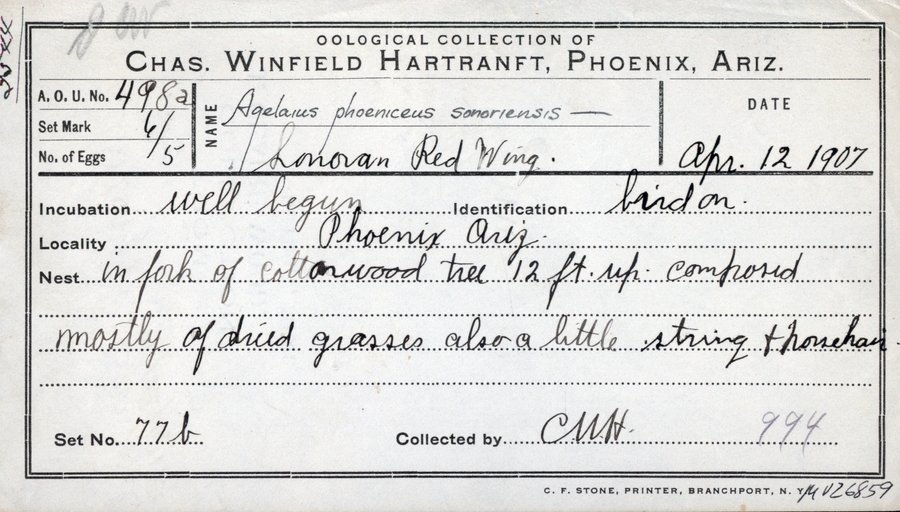 OOLOGICAL COLLECTION OF
CHAS. WINFIELD HARTRANFT, PHOENIX, ARIZ.
A. O. U. No. 498a
Set Mark 6/5
No. of Eggs
NAME Agelaius phoeniceus sonoriensis —
Sonoran Red Wing.
DATE
Apr. 12 1907
Incubation well begun Identification bird on.
Locality Phoenix Ariz.
Nest in fork of cottonwood tree 12 ft. up. composed
mostly of dried grasses also a little string & horsehair.
Set No. 77b Collected by CWH. 994
C. F. STONE, PRINTER, BRANCHPORT, N. Y.
MVZ6859